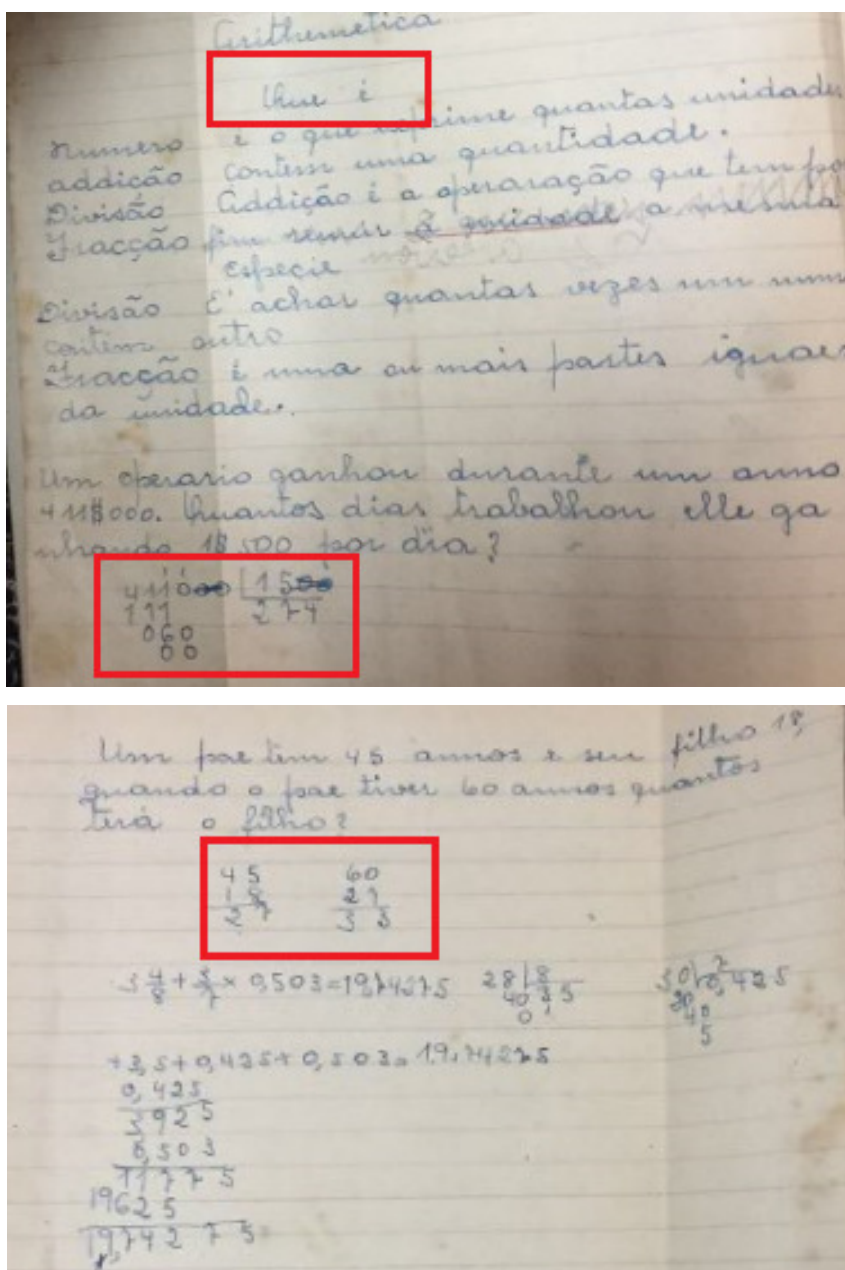 Arithemetica
Que é
Numero é o que exprime quantas unidades
addição contem uma quantidade.
Divisão Addição é a operaração que tem por
Fracção fim reunir a quidade a mesma
especie
Divisão E' achar quantas vezes um num
contem outro
Fracção é uma ou mais partes iguaes
da unidade.
Um operario ganhou durante um anno
411$000. Quantos dias trabalhou elle ga
nhando 1$500 por dia?
411000 | 1500
111 274
060
00
Um pae tem 45 annos e seu filho 18,
quando o pae tiver 60 annos quantos
terá o filho?
45 60
18 27
27 33
3 4/8 + 3/7 × 0,503=19,74275 28|8 30|7
40 3,5 20 0,425
0 40
5
+3,5+0,425+0,503=19,74275
0,425
3925
0,503
11775
19625
19,74275